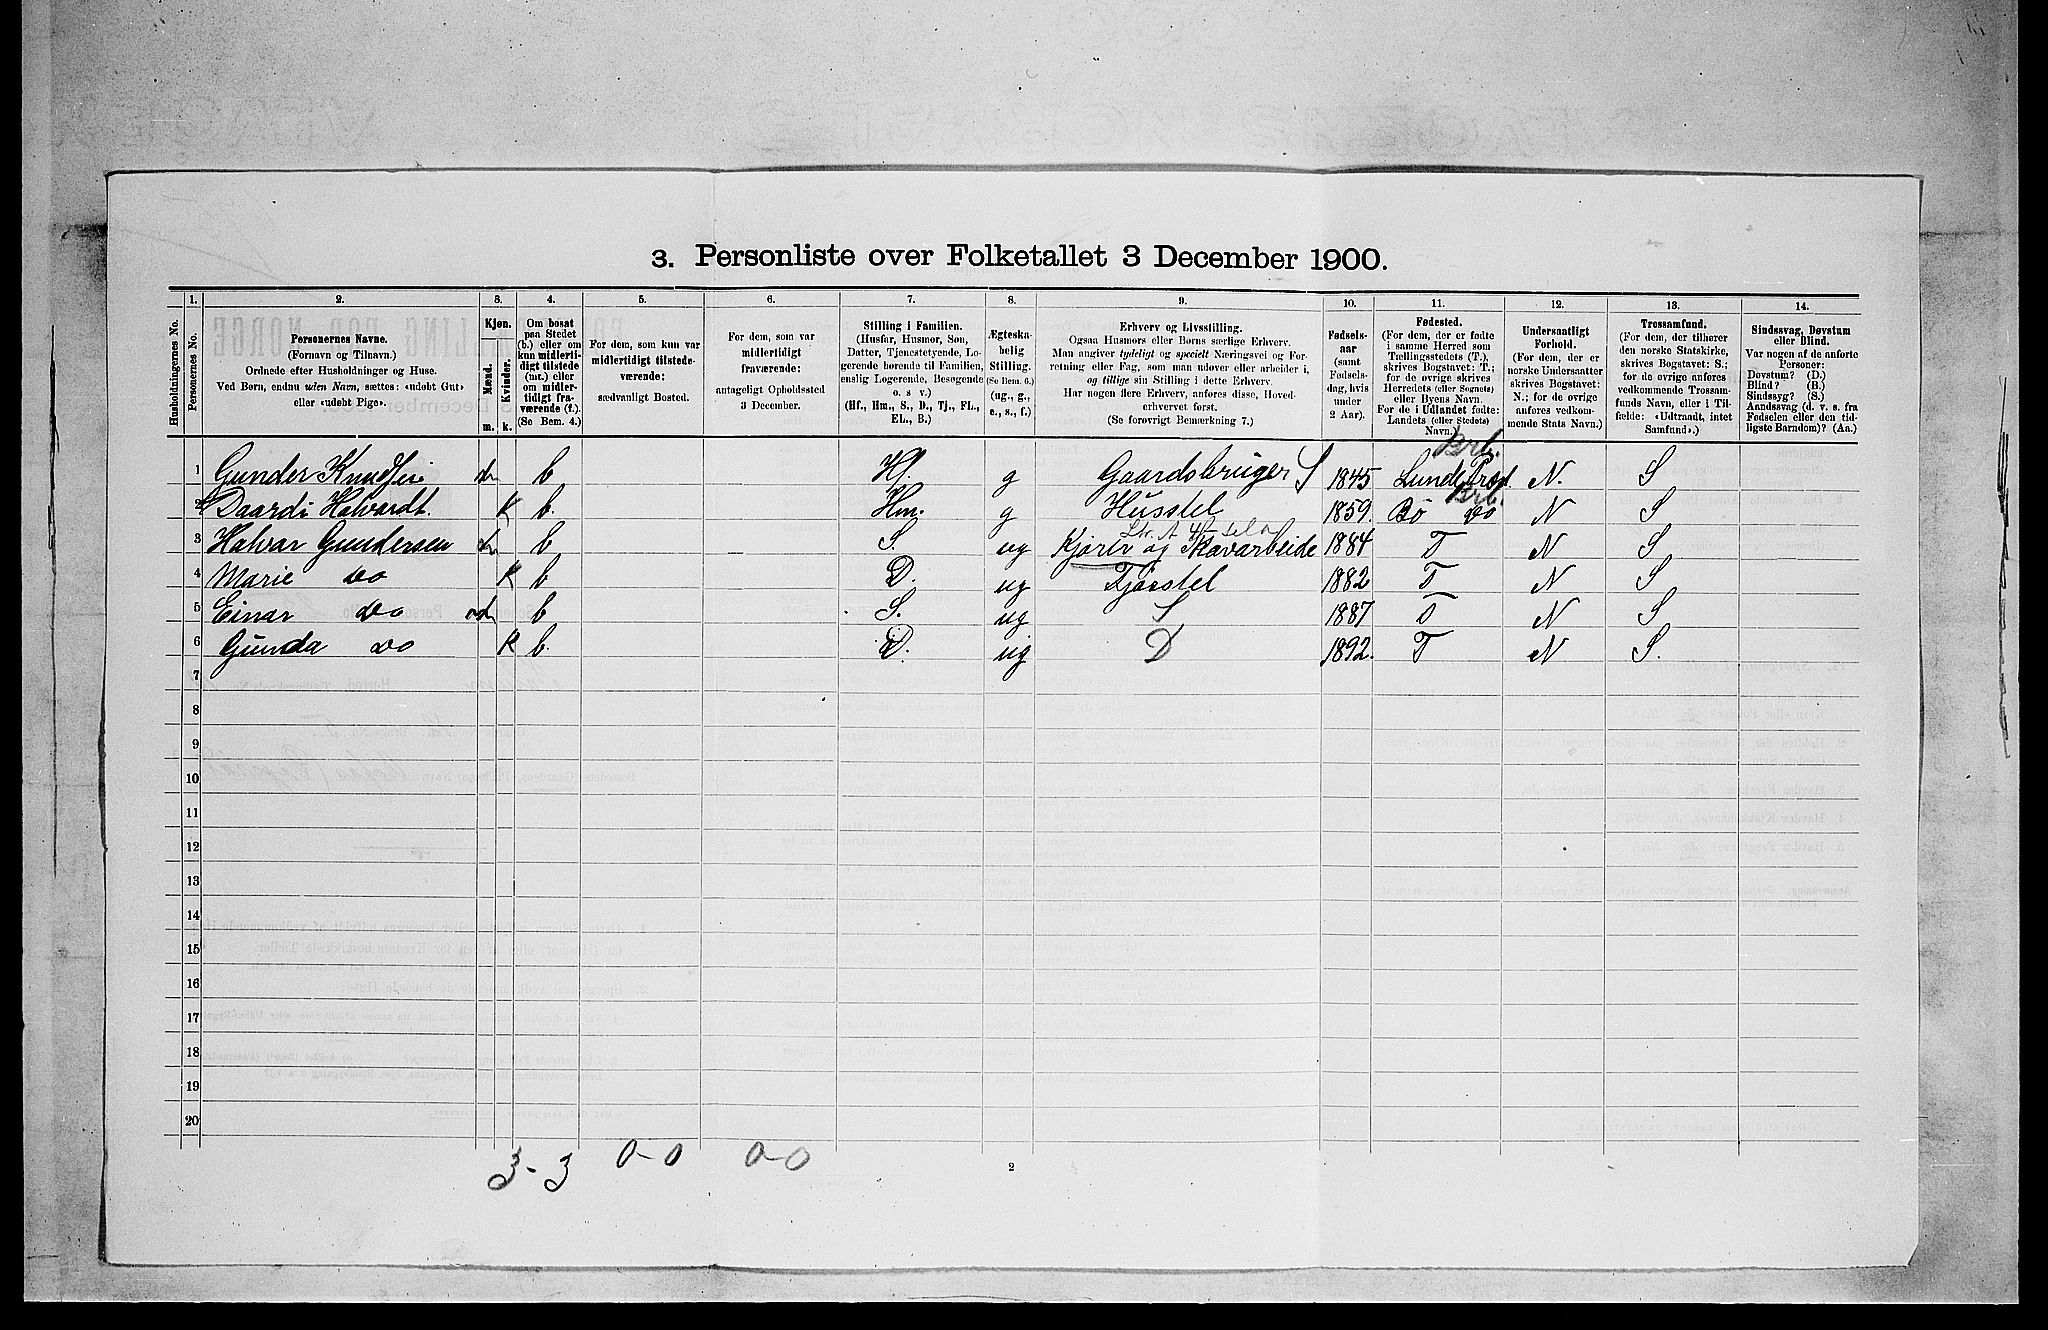 3. Personliste over Folketallet 3 December 1900.
1. 2. 3. 4. 5. 6. 7. 8. 9. 10. 11. 12. 13. 14.
Husholdningernes No.
Personernes No.
Personernes Navne.
(Fornavn og Tilnavn.)
Ordnede efter Husholdninger og Huse.
Ved Børn, endnu uden Navn, sættes: «udøbt Gut»
eller «udøbt Pige».
Kjøn.
Mænd. Kvinder.
m. k.
Om bosat
paa Stedet
(b.) eller om
kun midlerti-
digt tilstede
(mt.) eller
om midler-
tidigt fra-
værende (f.).
(Se Bem. 4.)
For dem, som kun var
midlertidigt tilstede-
værende:
sædvanligt Bosted.
For dem, som var
midlertidigt
fraværende:
antageligt Opholdssted
3 December.
Stilling i Familien.
(Husfar, Husmor, Søn,
Datter, Tjenestetyende, Lo-
gerende hørende til Familien,
enslig Logerende, Besøgende
o. s v.)
(Hf., Hm., S., D., Tj., FL.,
EL., B.)
Ægteska-
belig
Stilling.
(Se Bem. 6.)
(ug., g.,
e., s., f.)
Erhverv og Livsstilling.
Ogsaa Husmors eller Børns særlige Erhverv.
Man angiver tydeligt og specielt Næringsvei og For-
retning eller Fag, som man udøver eller arbeider i,
og tillige sin Stilling i dette Erhverv.
Har nogen flere Erhverv, anføres disse, Hoved-
erhvervet først.
(Se forøvrigt Bemærkning 7.)
Fødsels-
aar
(samt
Fødsels-
dag, hvis
under
2 Aar).
Fødested.
(For dem, der er fødte
i samme Herred som
Tællingsstedets (T.),
skrives Bogstavet: T.;
for de øvrige skrives
Herredets (eller Sognets)
eller Byens Navn.
For de i Udlandet fødte:
Landets (eller Stedets)
Navn.)
Undersaatligt
Forhold.
(For dem, der er
norske Undersaatter
skrives Bogstavet:
N.; for de øvrige
anføres vedkom-
mende Stats Navn.)
Trossamfund.
(For dem, der tilhører
den norske Statskirke,
skrives Bogstavet: S.;
for de øvrige anføres
vedkommende Trossam-
funds Navn, eller i Til-
fælde: «Udtraadt, intet
Samfund».)
Sindssvag, Døvstum
eller Blind.
Var nogen af de anførte
Personer:
Døvstum? (D.)
Blind? (B.)
Sindssyg? (S.)
Aandssvag (d. v. s. fra
Fødselen eller den tid-
ligste Barndom)? (Aa.)
Brb.
1 Gunder Knudsen m b Hf. g Gaardsbruger S 1845 Lunde Præst. N. S
Brb.
2 Daardi Halvardt. K b. Hm. g Husstel 1859. Bø do N S
3 Halvar Gundersen m b S. ug Kjører og Skovarbeide 1884 T N S
4 Marie do K b D. ug Fjøsstel 1882 T N S
5 Einar do m b S. ug S 1887 T N S
6 Gunda do K b. D. ug D 1892. T N S.
7
8
9
10
11
12
13
14
15
16
17
18
19
20
3 - 3 0 - 0 0 - 0
2